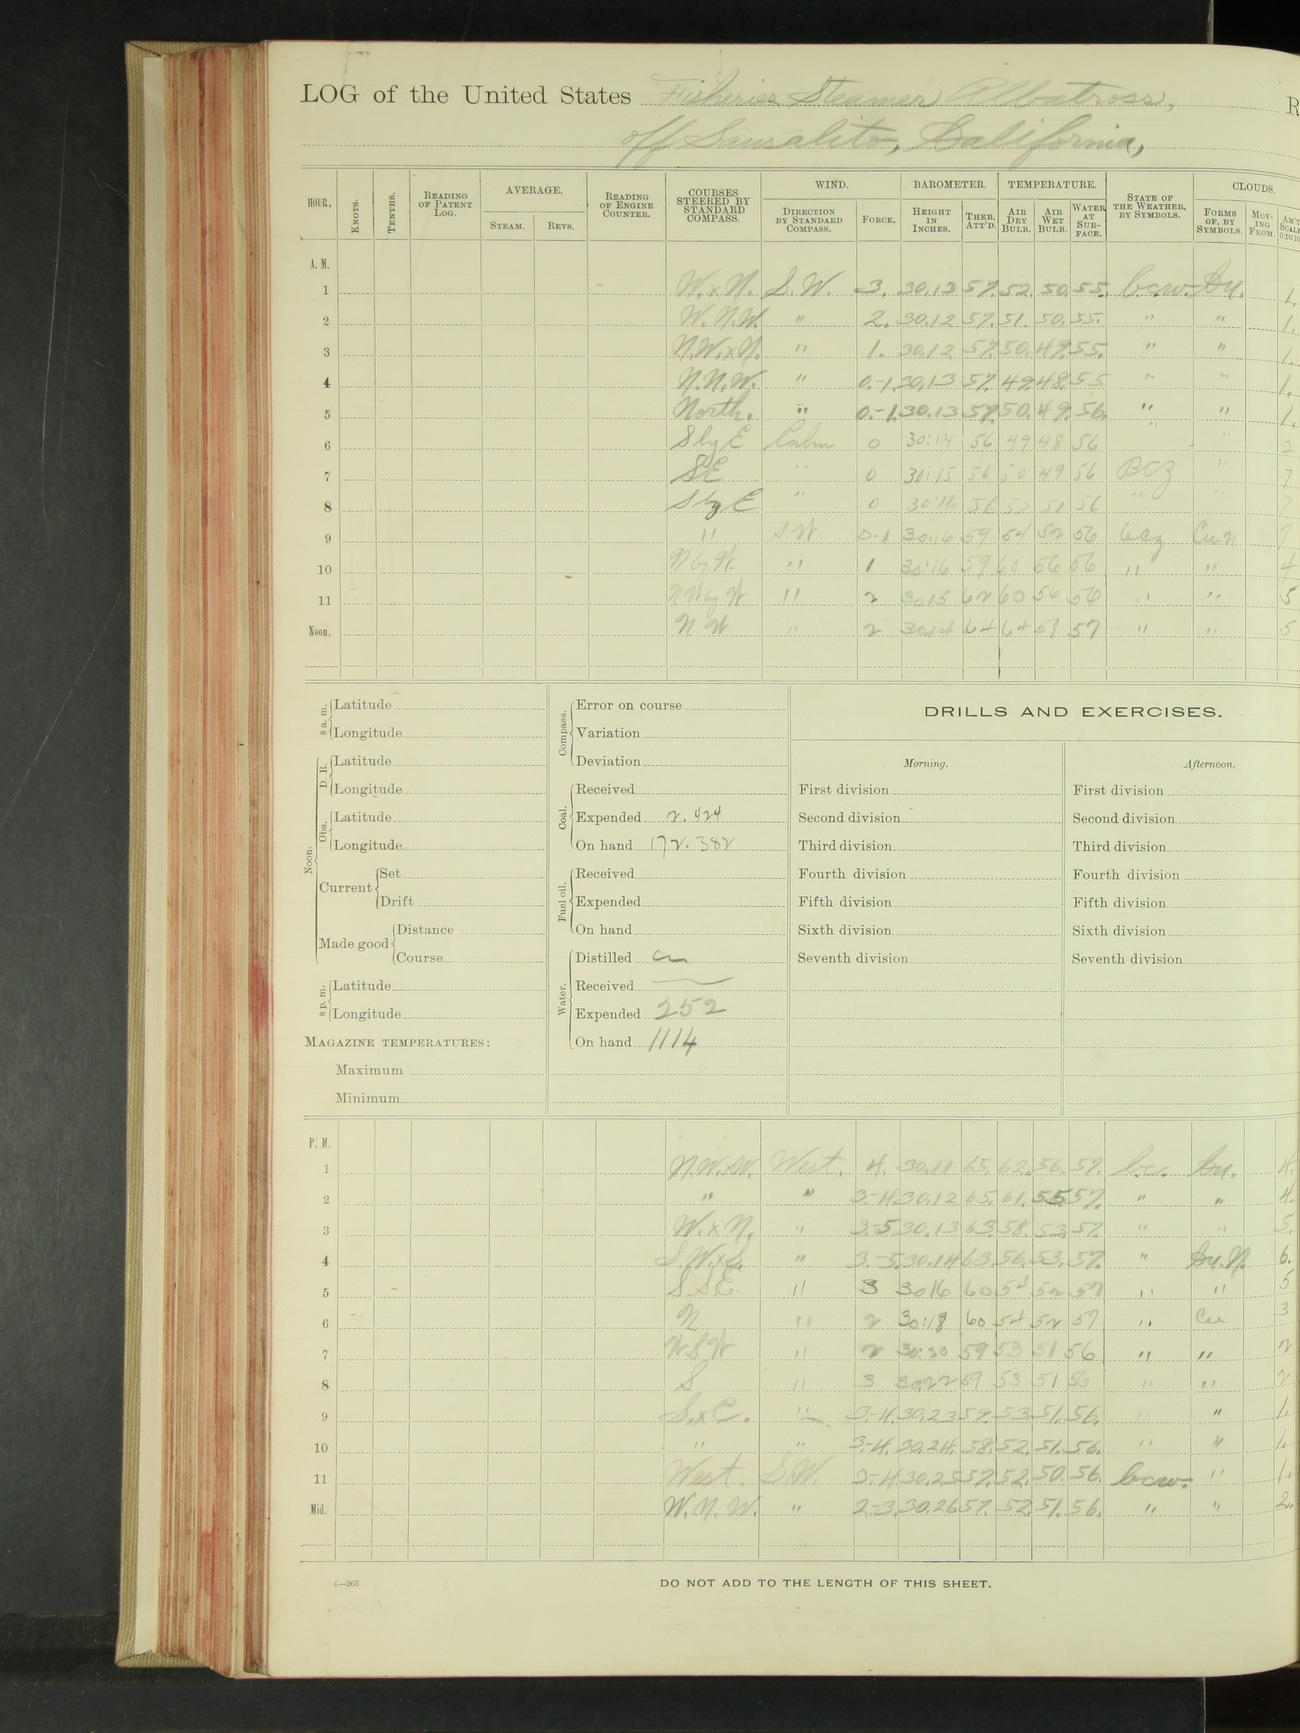 LOG of the United States Fisheries Steamer Albatross, R
off Sausalito, California,
HOUR. KNOTS. TENTHS. READING OF PATENT LOG. AVERAGE. STEAM. REVS. READING OF ENGINE COUNTER. COURSES STEERED BY STANDARD COMPASS. WIND. DIRECTION BY STANDARD COMPASS. FORCE. BAROMETER. HEIGHT IN INCHES. THER. ATT'D. TEMPERATURE. AIR DRY BULB. AIR WET BULB. WATER AT SURFACE. STATE OF THE WEATHER, BY SYMBOLS. CLOUDS. FORMS OF, BY SYMBOLS. MOVING FROM. AM'T SCALE 0 TO 10
A. M.
1 W.xN. S.W. 3. 30.13 57. 52. 50. 55. b.c.w. Cu. 1.
2 W.N.W. " 2. 30.12 57. 51. 50. 55. " " 1.
3 N.W.xN. " 1. 30.12 57. 50. 49. 55. " " 1.
4 N.N.W. " 0.-1. 30.13 57. 49. 48. 55 " " 1.
5 North. " 0.-1. 30.13 57. 50. 49. 56. " " 1.
6 S by E Calm 0 30:14 56 49 48 56 " 2
7 SE " 0 30:15 56 50 49 56 BCZ " 7
8 S by E " 0 30:16 56 52 51 56 " " 7
9 " S W 0-1 30.16 59 54 52 56 bcz Cu-n 7
10 N by W. " 1 30:16 59 60 56 56 " " 4
11 N W by W " 2 30.15 62 60 56 56 " " 5
Noon. N W " 2 30.14 64 64 57 " " 5
8 a. m. Latitude
Longitude
Noon. D. R. Latitude
Longitude
Obs. Latitude
Longitude
Current Set
Drift
Made good Distance
Course
8 p. m. Latitude
Longitude
MAGAZINE TEMPERATURES:
Maximum
Minimum
Compass. Error on course
Variation
Deviation
Coal. Received
Expended 2.424
On hand 172.382
Fuel oil. Received
Expended
On hand
Water. Distilled
Received
Expended 252
On hand 1114
DRILLS AND EXERCISES.
Morning.
First division
Second division
Third division
Fourth division
Fifth division
Sixth division
Seventh division
Afternoon.
First division
Second division
Third division
Fourth division
Fifth division
Sixth division
Seventh division
P. M.
1 N.W.xW. West. 4. 30.11 65. 62. 56. 57. b.c. Cu. 4.
2 " " 3.-4. 30.12 65. 61. 55. 57. " " 4.
3 W.xN. " 3.-5 30.13 63. 58. 53. 57. " " 5.
4 S.W.xS. " 3.-5. 30.14 63. 56. 53. 57. " Cu.N. 6.
5 S.S.E. " 3 30.16 60 54 52 57 " " 5
6 N " 2 30:18 60 54 52 57 " Cu 3
7 W S W " 2 30:20 59 53 51 56 " " 2
8 S " 3 30.22 59 53 51 56 " " 2
9 S.xE. " 3.-4. 30.23 59. 53. 51. 56. " 1.
10 " " 3.-4. 30.24. 58. 52. 51. 56. " " 1.
11 West. S.W. 3-4 30.25 57. 52. 50. 56. bcw. " 1.
Mid. W.N.W. " 2-3. 30.26 57. 52. 51. 56. " " 2.
4—265
DO NOT ADD TO THE LENGTH OF THIS SHEET.